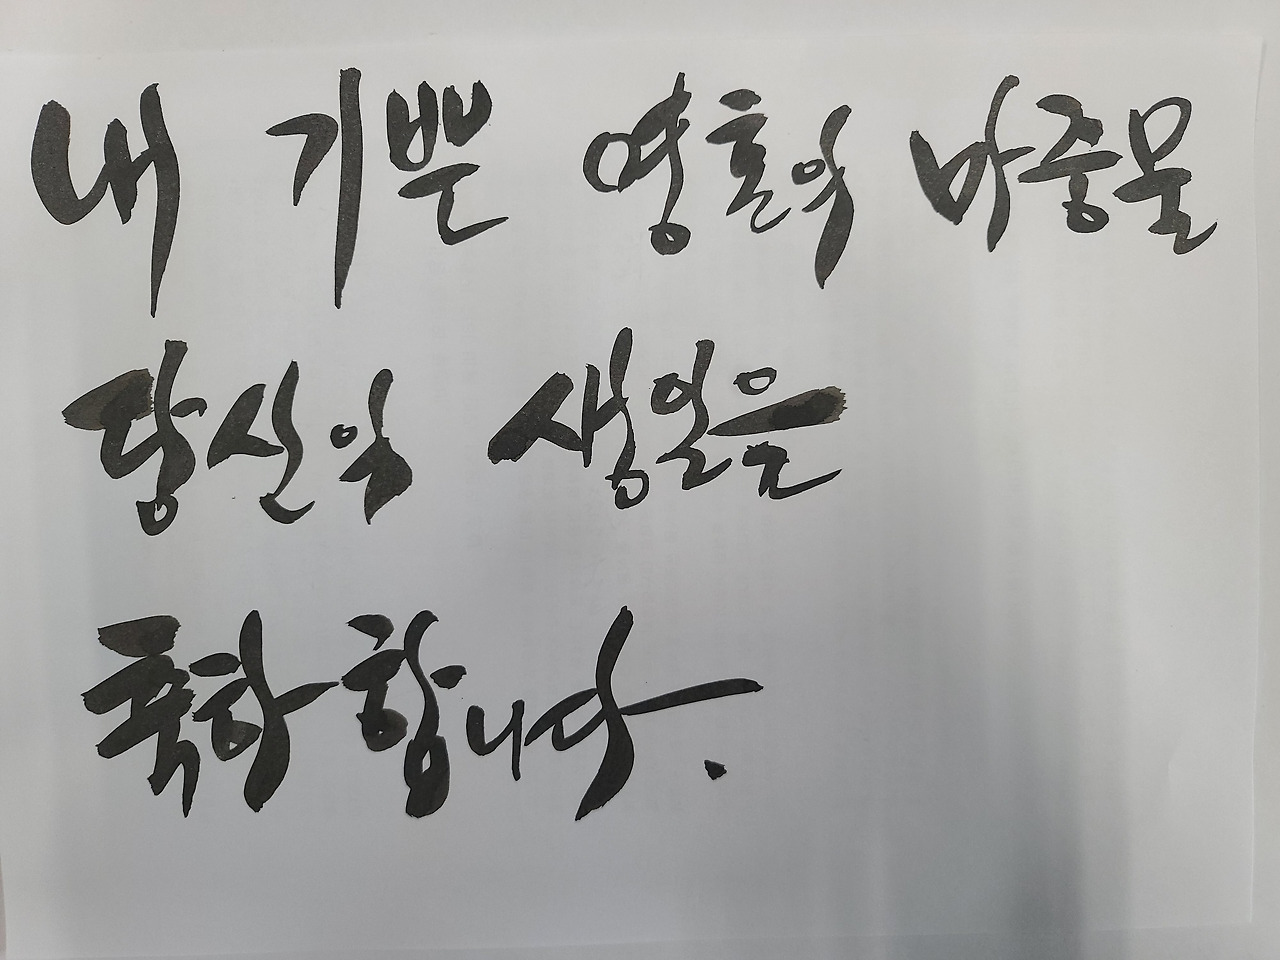 내 기쁜 영혼의 마중물
당신의 생일을
축하합니다.